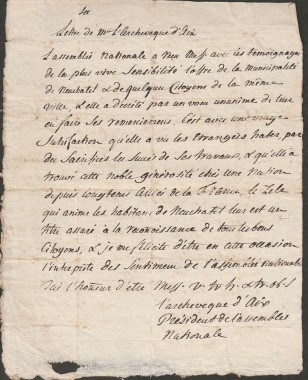 Lettre de Mr L'archeveque d'Aix
L'assemblée Nationale a reçu Messrs avec les témoignages
de la plus vive Sensibilité l'offre de la municipalité
de Neuchatel & de quelques Citoyens de la même
ville, & elle a décrété par un voeu unanime de leur
en faire Ses remerciemens. C'est avec une vraye
Satisfaction qu'elle a vu les Etrangers hater par
des Sacrifices les Succès de Ses travaux, & qu'elle a
trouvé cette noble générosité chés une Nation
depuis longtems Alliée de la France, le Zele
qui anime les habitans de Neuchatel leur est un
titre assuré à la reconnoissance de tous les bons
Citoyens, & je me félicite d'être en cette occasion
l'interprete des Sentimens de l'assemblée nationale
J'ai l'honneur d'être Messrs v. tr. h. & tr. ob. s.
l'archeveque d'Aix
Président de l'assemblée
Nationale